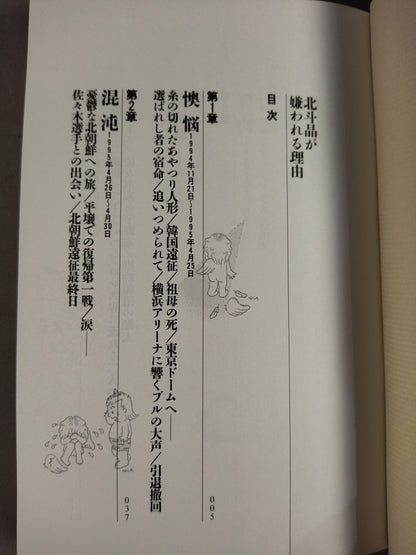 北斗晶が
嫌われる理由
目次
第1章
懊悩 1994年11月21日〜1995年4月25日
糸の切れたあやつり人形/韓国遠征/祖母の死/東京ドームへ——
選ばれし者の宿命/追いつめられて/横浜アリーナに響くブルの大声/引退撤回
005
第2章
混沌 1995年4月26日〜4月30日
憂鬱な北朝鮮への旅/平壌での復帰第一戦/涙——
佐々木選手との出会い/北朝鮮遠征最終日
037